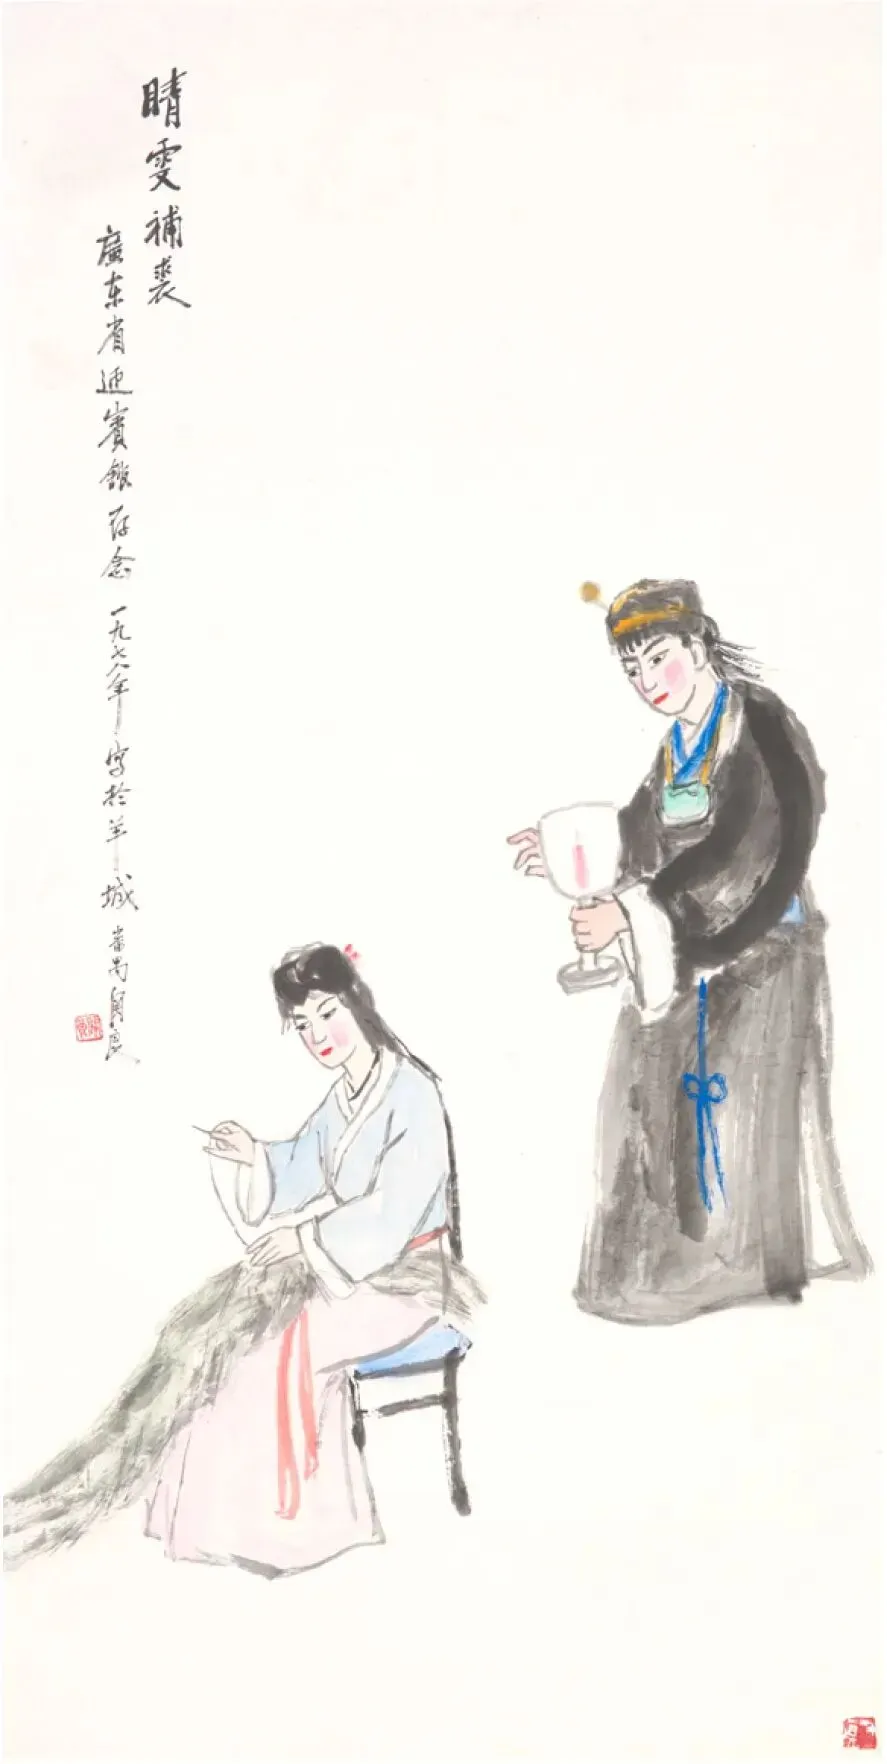 晴雯補裘
廣东省迎賓館存念 一九七八年寫於羊城 番禺関良